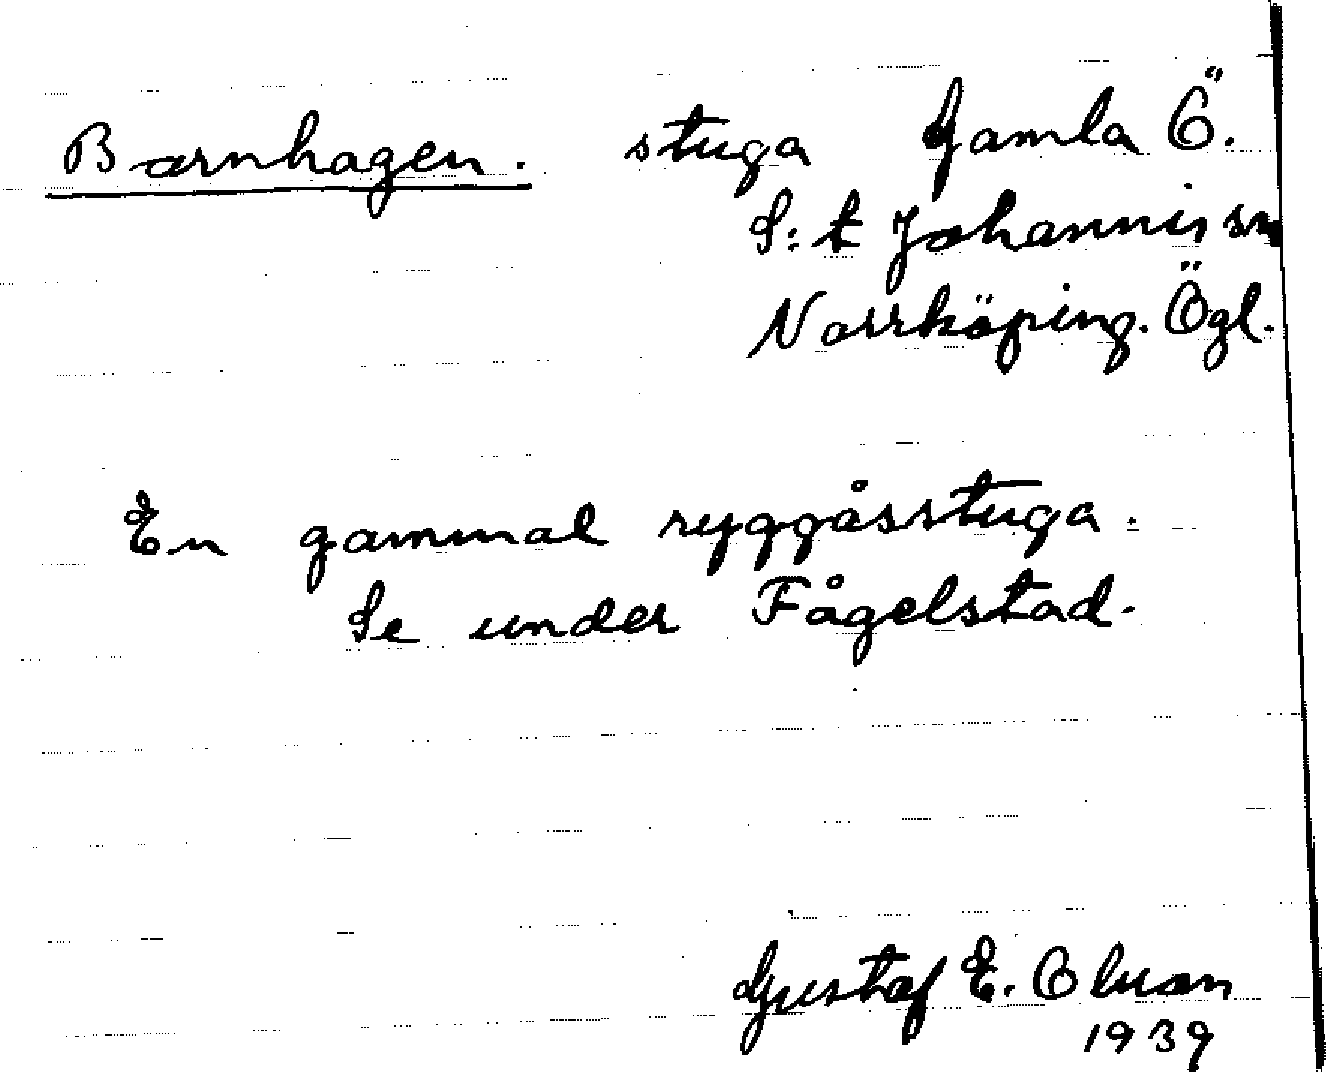 Barnhagen. stuga Gamla Ö.
S:t Johannis sn
Norrköping. Ögl.
En gammal ryggåsstuga.
Se under Fågelstad.
Gustaf E.
1939